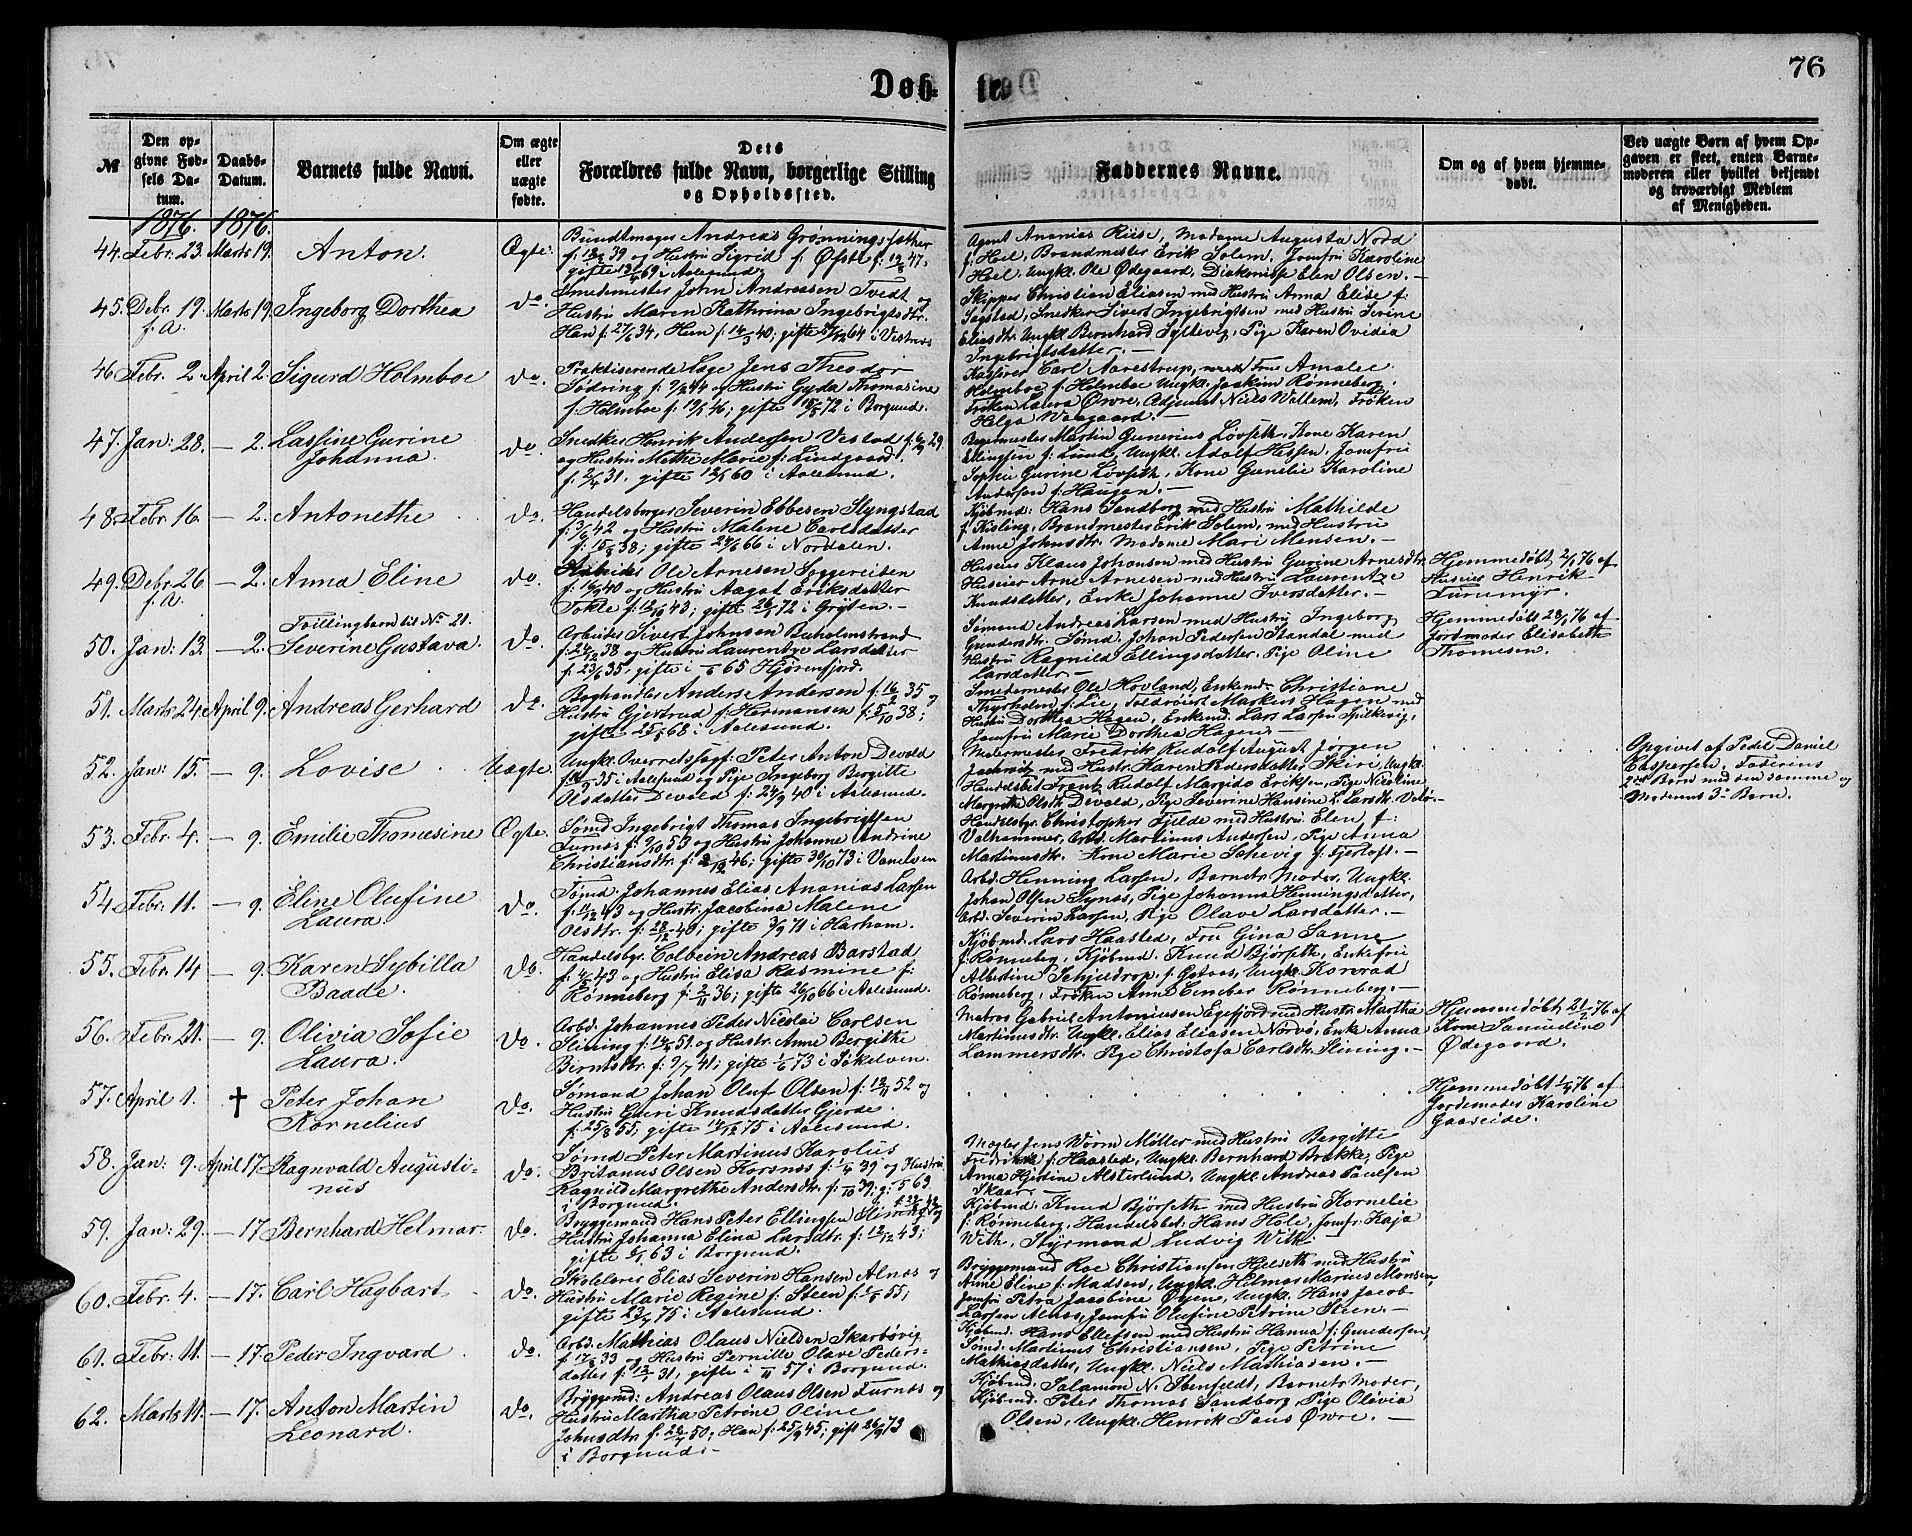 76
Døb- te.
№
Den opgivne Fødsels Datum.
Daabs-Datum.
Barnets fulde Navn.
Om ægte eller uægte fødte.
Dets Forældres fulde Navn, borgerlige Stilling og Opholdssted.
Faddernes Navne.
Om og af hvem hjemmedøbt.
Ved uægte Børn af hvem Opgaven er skeet, enten Barnemoderen eller hvilket bekjendt og troværdigt Medlem af Menigheden.
1876. 1876.
44. Febr. 23. Marts 19. Anton. Ægte.
Bundtmager Andreas Grønningsæther
f: 12/2 39 og Hustru Sigrid f: Øfsti f: 19/8 47,
gifte 69 i Aalesund.
Agent Ananias Riise, Madame Augusta Nord
f: Hoel, Brandmester Erik Solem, Jomfru Karoline
Hoel, Ungkl. Ole Ødegaard, Diakonisse Elen Olsen. —
45. Debr. 19. f. A. Marts 19. Ingeborg Dorthea do.
Smedemester John Andreasen Tvedt og
Hustru Maren Kathrina Ingebrigtsdtr.
Han f: 27/6 34, Hun f: 14/3 40; gifte 64 i Vestnes
Skipper Christian Eliasen med Hustru Anna Elise f:
Sagstad, Snedker Sivert Ingebrigtsen med Hustru Serine
Eliasdtr. Ungkl. Bernhard Syltevig, Pige Karen Ovidia
Ingebrigtsdatter. —
46. Febr. 2. April 2. Sigurd Holmboe do.
Praktiserende Læge Jens Theodor
Sødring f: 9/2 44 og Hustru Gyda Thomasine
f: Holmboe f: 19/1 46; gifte 15/5 72 i Borgund.
Kasserer Carl Aarestrup, Frue Amalie
Holmboe f: Holmboe Ungkl. Joakim Rønneberg,
Frøken Laura Øvre, Adjunct Niels Wallem, Frøken
Helga Waagaard. —
47. Jan: 28. — 2. Lassine Gurine
Johanna. do.
Snedker Henrik Andersen Vestad f: 29
og Hustru Mette Marie f: Lindgaard,
f: 2/4 31. gifte 60 i Aalesund.
Bagermester Martin Gunerius Løvseth, Kone Karen
Ellingsen f: Lund, Ungkl. Adolf Hessen, Jomfru
Sophie Gurine Løvseth, Kone Gunelie Karoline
Andersen f: Haugen. —
48. Febr. 16. — 2. Antonethe do.
Handelsborger Severin Ebbesen Slyngstad
f: 3/6 42 og Hustru Malene Carlsdatter
f: 15/3 38; gifte 24/6 66 i Nordalen.
Kjøbmd: Hans Sandborg med Hustru Mathilde
f: Kisling, Brandmester Erik Solem, med Hustru
Anne Johnsdtr. Madame Mari Monsen. —
49. Debr. 26 f. A. — 2. Anna Eline do.
Ole Arnesen Soggereiten
f: 16/9 40 og Hustru Aagot Eriksdatter
Tokle f: 12/10 43; gifte 26/1 72 i Grytten. —
Huseier Klaus Johansen med Hustru Gurine Arnesdtr.
Huseier Arne Arnesen med Hustru Laurentze
Knudsdatter, Enke Johanne Iversdatter. —
Hjemmedøbt 2/1 76 af
Huseier Henrik
Furumyr.
Tvillingbarn til No 21.
50. Jan: 13. — 2. Severine Gustava. do.
Arbeider Sivert Johnsen Buholmstrand
f: 24/12 38 og Hustru Laurentze Larsdatter
f: 23/6 35; gifte i — 65 Hjørenfjord.
Sømand Andreas Larsen med Hustru Ingeborg
Gundersdtr. Sømd. Johan Pedersen Standal med
Hustru Ragnild Ellingsdatter. Pige Oline
Larsdatter —
Hjemmedøbt 28/1 76 af
Jordmoder Elisabeth
Thomesen.
51. Marts 24. April 9. Andreas Gerhard do.
Boghandler Anders Andersen f: 16/2 35 og
Hustru Gjertrud f: Hermansen f: 5/10 38;
gifte 23/5 68 i Aalesund.
Smedemester Ole Hovland, Enkemd. Christiane
Thyrholm f: Lie, Toldrorer Markus Hagen med
Hustru Dorthea Hagen, Enkemd. Lars Larsen Spilkevig,
Jomfru Marie Dorthea Hagen. —
52. Jan: 15. — 9. Lovise Uægte.
Ungkl. Overretssagf: Peter Anton Devold
f: 35 i Aalesund og Pige Ingeborg Bergitte
Olsdatter Devold f: 24/9 40 i Aalesund.
Malermester Fredrik Rudolf August Jørgen
med Hustr. Karen Pedersdatter Skiri, Ungkl.
Handelsbet. Frantz Rudolf Margido Eriksen, Pige Nicoline
Margrethe Olsdtr Devold, Pige Severine Hansine L. Larsdtr. —
Opgivet af Pedel Daniel
Caspersen. Faderens
2det Barn med den samme og
Moderens 3die Barn.
53. Febr. 4. — 9. Emilie Thomesine Ægte.
Sømd Ingebrigt Thomas Ingebrigtsen
Furnæs f: 9/10 53 og Hustru Johanne Andrine
Christiansdtr f: 2/12 46; gifte 30/10 73 i Vanelven
Handelsbgr. Christopher Fjelde med Hustru Elen, f:
Valhammer, Arbd. Martinus Andersen, Pige Anna
Martinusdtr. Kone Marie Schevig f: Fjertoft. —
54. Febr. 11. — 9. Eline Olufine
Laura. do.
Sømd. Johannes Elias Ananias Larsen
f: 43 og Hustr. Jacobina Malene
Olsdtr. f: 28/12 40; gifte 3/9 71 i Harham.
Arbd. Henning Larsen, Barnets Moder, Ungkl.
Johan Olsen Synes, Pige Johanna Henningsdatter,
Arbd. Severin Larsen, Pige Olave Larsdatter. —
55. Febr. 14 — 9. Karen Sybilla
Baade. do.
Handelsbgr. Colbein Andreas Barstad
f: 43 og Hustru Elisa Rasmine f:
Rønneberg f: 2/11 36; gifte 26/10 66 i Aalesund.
Kjøbmd. Lars Haasted, Fru Gina Sanne
f: Rønneberg, Kjøbmd. Knud Bjørseth, Enkefru
Albertine Schjeldrop f: Gotaas, Ungkl. Konrad
Rønneberg, Frøken Anne Cember Rønneberg. —
56. Febr. 21. — 9. Olivia Sofie
Laura. do.
Arbd. Johannes Peder Nicolai Carlsen
Slining f: 51 og Hustr. Anne Bergithe
Berntsdtr. f: 9/7 41; gifte 1/6 73 i Sökelven.
Matros Gabriel Antoniusen Egefjord med Hustr. Martha
Martinusdtr. Ungkl. Elias Eliasen Nørvø, Enk. Anna
Lammersdtr. Pige Christofa Carlsdtr. Slining. —
Hjemmedøbt 21/2 76 af
Kone Samueline
Ødegaard.
57. April 1. † Peter Johan
Kornelius do.
Sømand Johan Oluf Olsen f: 12/11 52 og
Hustru Guri Knudsdatter Gjerde.
f: 25/8 55; gifte 14/12 75 i Aalesund.
Hjemmedøbt 1/4 76 af
Jordemoder Karoline
Gaaseide.
58. Jan: 9. April 17 Ragnvald Augusti-
nus do.
Sømd Peter Martinus Karolus
Britanus Olsen Korsnes f: 39 og Hustru
Ragnild Margrethe Andersdtr. f: 39; g: 63
i Borgund.
Mægler Jens Worm Møller med Hustru Bergitte
Fredrikke f: Haasted, Ungkl. Bernhard Brække, Pige
Anna Hjertine Alsterlund, Ungkl. Andreas Paulsen
Skaar. —
59. Jan: 29. — 17 Bernhard Helmar. do.
Bryggemand Hans Peter Ellingsen Sliming og
Hustru Johanna Elina Larsdtr. f: 12/12 43;
gifte 63 i Borgund.
Kjøbmd. Knud Bjørseth med Hustru Kornelie
f: Rønneberg, Handelsbet. Hans Hole, Jomfr. Kaja
With, Styrmand Ludvig With. —
60. Febr. 4. — 17. Carl Hagbart do.
Skolelærer Elias Severin Hansen Alnæs og
Hustru Marie Regine f: Steen f: 55,
gifte 23/4 75 i Aalesund.
Bryggemand Roe Christiansen Hjelseth med Hustru
Anne Eline f: Madsen, Ungkl. Hilmar Marius Monsen,
Jomfru Petra Jacobine Øyen, Ungkl. Hans Jacob
Larsen Alnæs, Jomfru Olufine Petrine Steen. —
61. Febr: 11. — 17. Peder Ingvard do.
Arbd. Mathias Olaus Nielsen Skarbøvig
f 33 og Hustru Pernille Olave Peders-
datter f: 31, gifte i 57 i Borgund.
Kjøbmd. Hans Ellefsen med Hustru Hanna f: Gundersen,
Sømd. Martinus Christiansen, Pige Petrine
Mathiasdatter, Ungkl. Niels Mathiasen. —
62. Marts 11. — 17. Anton Martin
Leonard. do.
Bryggemd: Andreas Olaus Olsen Furnæs og
Hustru Martha Petrine Oline
Johnsdtr. f: 50; Han f: 25/9 45; gift 26/9 73
i Borgund. —
Kjøbmd. Salamon N. Ibenfeldt, Barnets Moder,
Kjøbmd. Peter Thomas Sandborg, Pige Olivia
Olsen, Ungkl. Henrik Paus Øvre. —